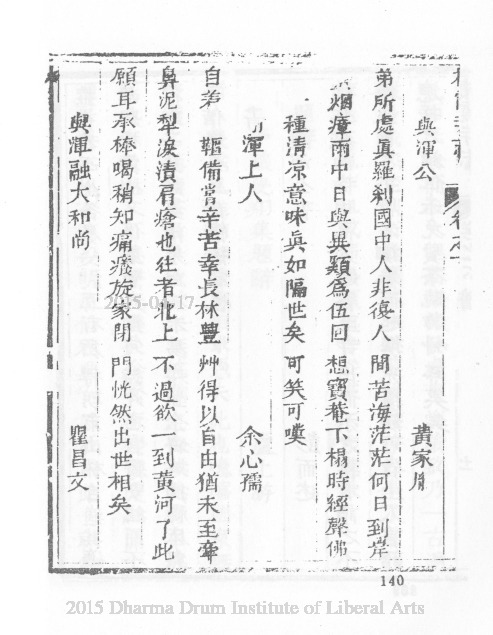 卷之一
與渾公 黃家
弟所處眞羅刹國中人非復人間苦海茫茫何日到岸
烟瘴雨中日與異類爲伍回想寶菴下榻時經聲佛
種清凉意味眞如隔世矣可笑可嘆
渾上人 余心孺
自弟 鞱備嘗辛苦幸長林豐艸得以自由猶未至牽
鼻泥犁淚漬肩瘡也往者北上不過欲一到黃河了此
願耳承棒喝稍知痛癢旋家閉門恍然出世相矣
與渾融大和尚 瞿昌文
140
2015-04-17
2015 Dharma Drum Institute of Liberal Arts